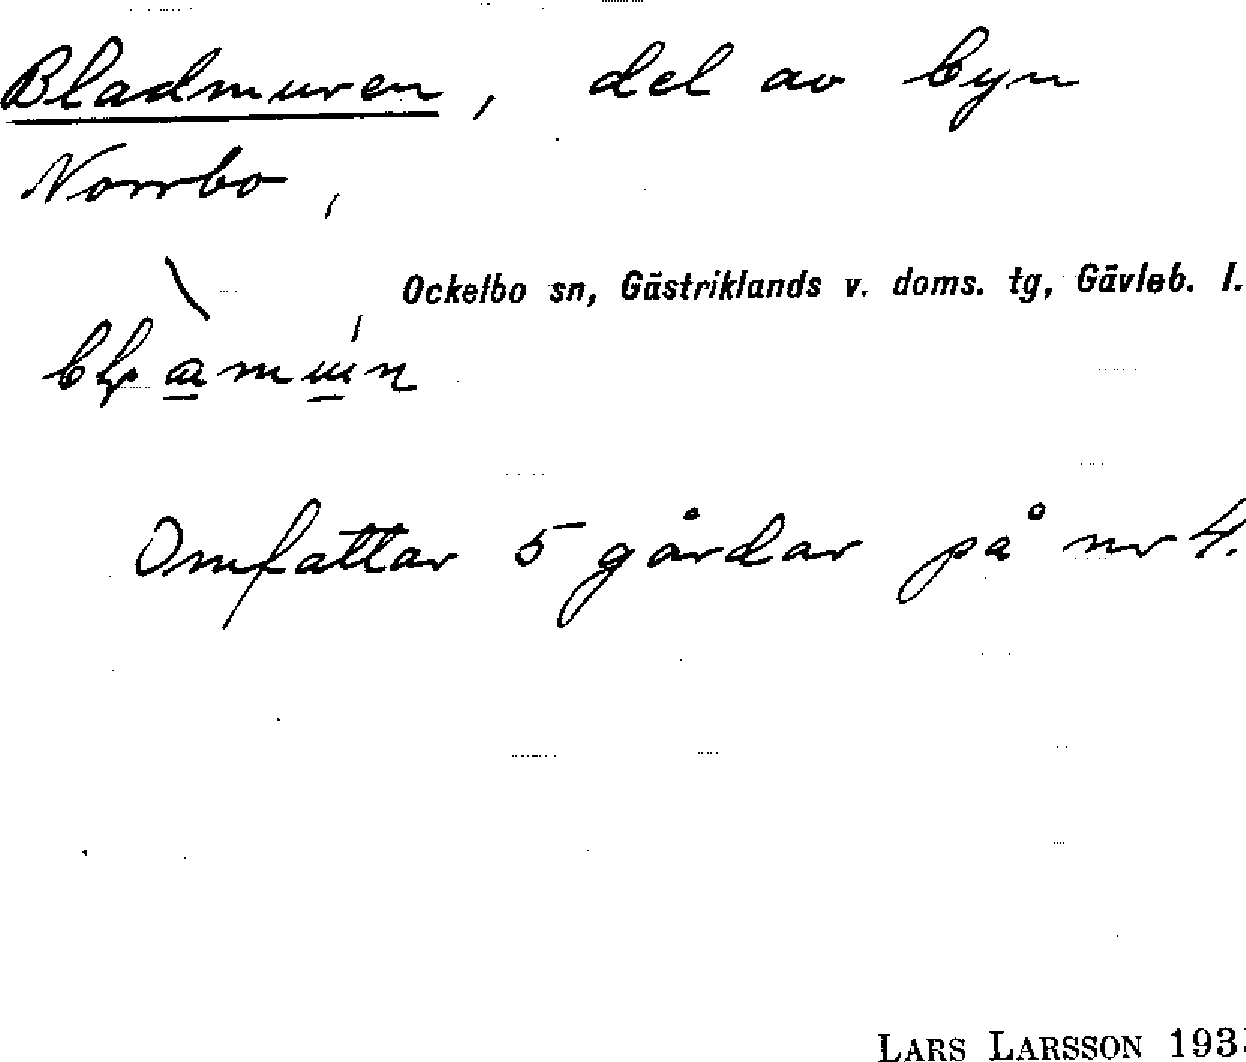 Bladmuren, del av byn
Norrbo,
Ockelbo sn, Gästriklands v. doms. tg, Gävleb. l.
Omfattar 5 gårdar på nr 4.
LARS LARSSON 193